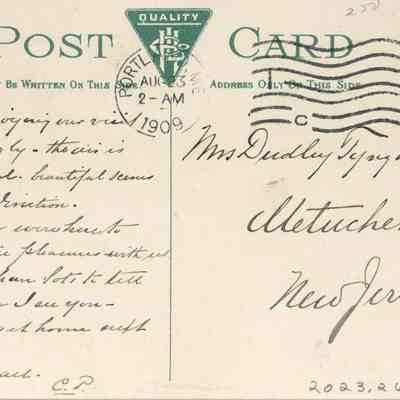 250
POST CARD
QUALITY
Y BE WRITTEN ON THIS SIDE
ADDRESS ONLY ON THIS SIDE
PORTL
ME
AUG 23
2-AM
1909
C
oying our visit
ly - the air is
beautiful scenes
direction.
pleasures with us
Lots to tell
I see you -
at home
C.P.
Mrs Dudley
Metuche
New Jer
2023.26